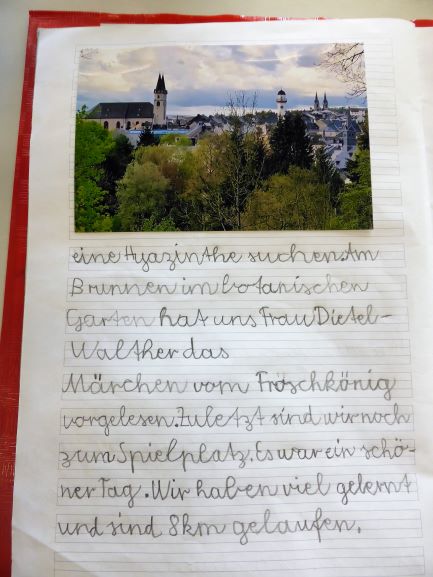 eine Hyazinthe suchen. Am
Brunnen im botanischen
Garten hat uns Frau Dietel-
Walther das
Märchen vom Fröschkönig
vorgelesen. Zuletzt sind wir noch
zum Spielplatz. Es war ein schö-
ner Tag. Wir haben viel gelernt
und sind 8km gelaufen.